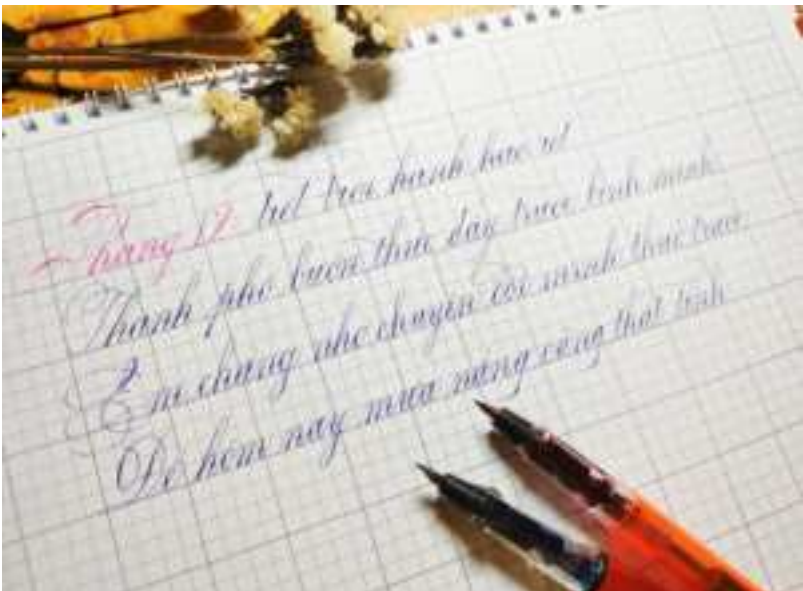 Tháng 12 tiết trời hanh hao rét
Thành phố buồn thức dậy trước bình minh
Em chẳng nhớ chuyện
Để hôm nay mưa nắng cũng thất tình